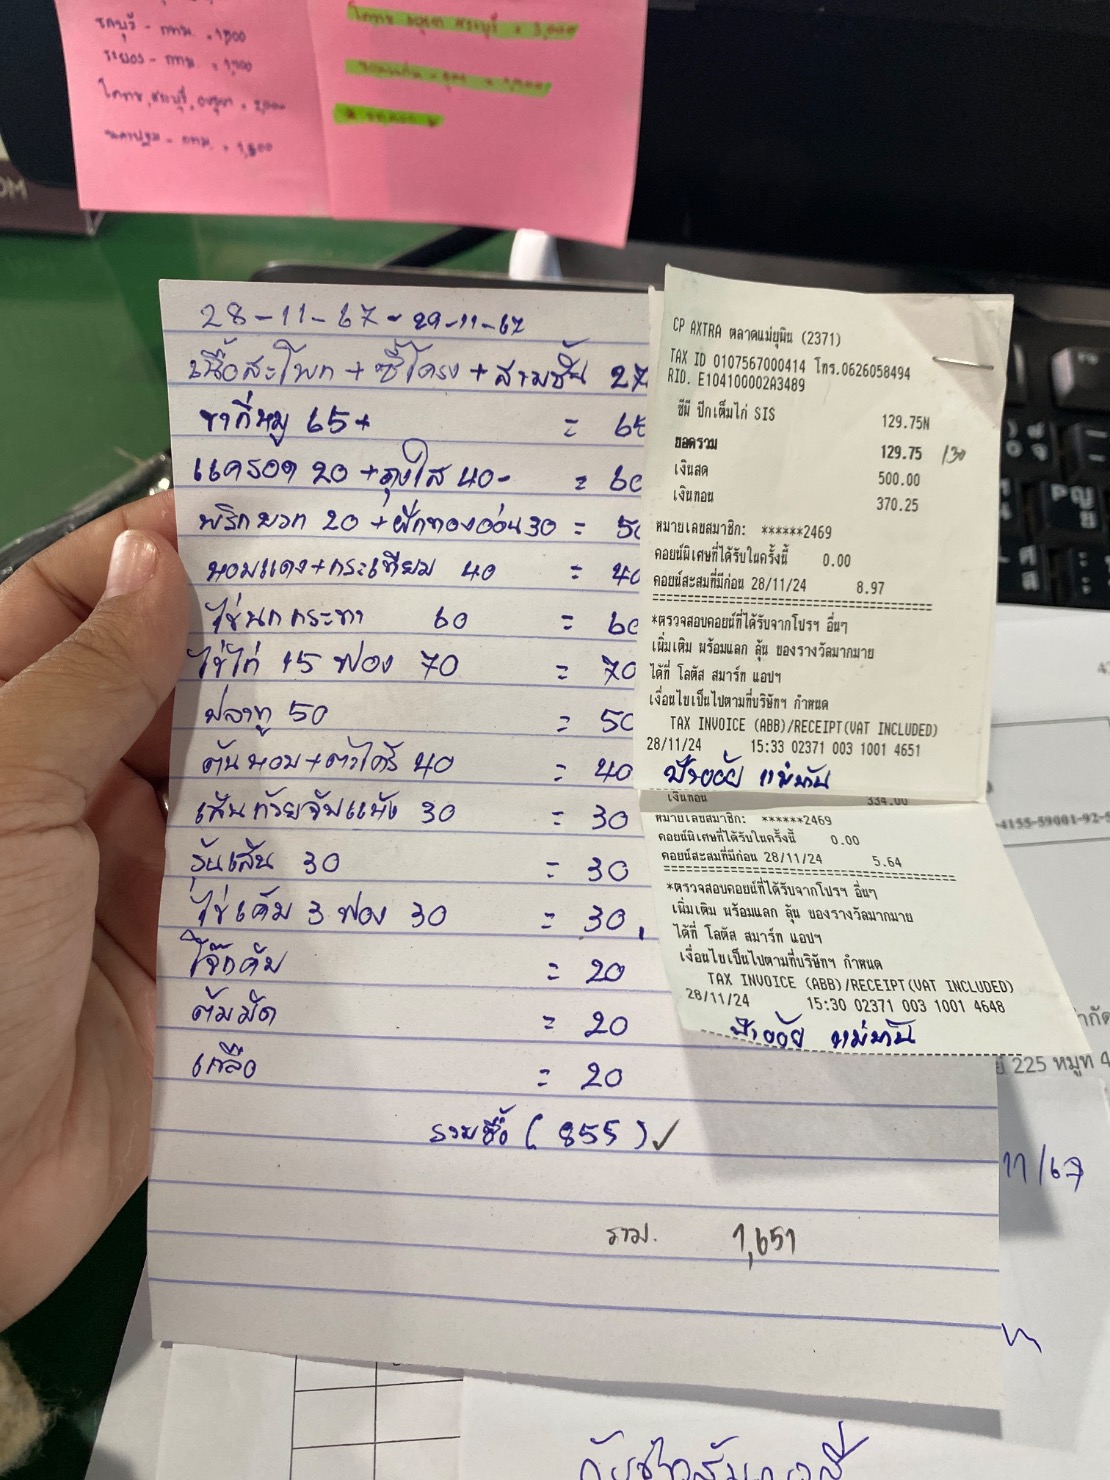 ชลบุรี - กทม. = 1,700
ระยอง - กทม. = 1,700
โคราช, สระบุรี, อยุธยา = 2,000
นครปฐม - กทม. =
โคราช อยุธยา สระบุรี = 3,000
28-11-67 - 29-11-67
เนื้อสะโพก + ซี่โครง + สามชั้น 27
ขากีหมู 65+ = 65
แครอด 20 + ถุงใส 40- = 60
พริกหยวก 20 + ฝักทองอ่อน 30 = 50
หอมแดง+กระเทียม 40 = 40
ไข่นกกระทา 60 = 60
ไข่ไก่ 15 ฟอง 70 = 70
ปลาทู 50 = 50
ต้นหอม+ตะไคร้ 40 = 40
เส้นก๋วยจั๊บแห้ง 30 = 30
วุ้นเส้น 30 = 30
ไข่เค็ม 3 ฟอง 30 = 30
โจ๊กคัม = 20
ต้มมัด = 20
เกลือ = 20
รวมซื้อ (855) ✓
รวม. 1,651
CP AXTRA ตลาดแม่ยุนิน (2371)
TAX ID 0107567000414 โทร.0626058494
RID. E104100002A3489
ซีพี ปีกเต็มไก่ SIS 129.75N
ยอดรวม 129.75 130
เงินสด 500.00
เงินทอน 370.25
หมายเลขสมาชิก: ******2469
คอยน์พิเศษที่ได้รับในครั้งนี้ 0.00
คอยน์สะสมที่มีก่อน 28/11/24 8.97
*ตรวจสอบคอยน์ที่ได้รับจากโปรฯ อื่นๆ
เพิ่มเติม พร้อมแลก ลุ้น ของรางวัลมากมาย
ได้ที่ โลตัส สมาร์ท แอปฯ
เงื่อนไขเป็นไปตามที่บริษัทฯ กำหนด
TAX INVOICE (ABB)/RECEIPT(VAT INCLUDED)
28/11/24 15:33 02371 003 1001 4651
ป้าออัย แม่บ้าน
เงินทอน 334.00
หมายเลขสมาชิก: ******2469
คอยน์พิเศษที่ได้รับในครั้งนี้ 0.00
คอยน์สะสมที่มีก่อน 28/11/24 5.64
*ตรวจสอบคอยน์ที่ได้รับจากโปรฯ อื่นๆ
เพิ่มเติม พร้อมแลก ลุ้น ของรางวัลมากมาย
ได้ที่ โลตัส สมาร์ท แอปฯ
เงื่อนไขเป็นไปตามที่บริษัทฯ กำหนด
TAX INVOICE (ABB)/RECEIPT(VAT INCLUDED)
28/11/24 15:30 02371 003 1001 4648
ป้าออัย แม่บ้าน
-4155-59001-92-5
225 หมู่ที่ 4
11/67